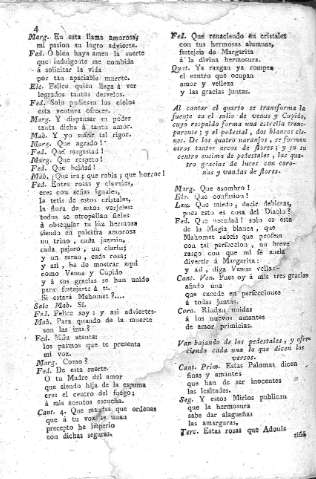 4
Marg. En esta llama amorosa,
mi pasion su logro advierte.
Fed. O bien haya amen la suerte
que indulgente me combida
á solicitar la vida
por tan apacible muerte.
Elv. Felice quien llega á ver
logrados tantos desvelos.
Fed. Solo pudieron los cielos
esta ventura ofrecer.
Marg. Y dispensar su poder
tanta dicha á tanto amor.
Mah. Y yo sufrir tal rigor.
Marg. Que agrado!
Fed. Que magestad!
Marg. Que respeto!
Fed. Que beldad!
Mah. Que ira; que rabia; que horror!
Fed. Entre rosas y claveles,
esos con señas iguales,
la tetis de estos cristales,
la flora de estos verjeles
todos se atropellan fieles
á obsequiar tu luz hermosa
siendo en palestra amorosa
un trino, cada jazmin,
cada pajaro, un clarin;
y un astro, cada rosa;
y así, ha de mostrar aquí
como Venus y Cupido
y á sus gracias se han unido
para festejarte á ti.
Si estará Mahomet?....
Sale Mah. Sí.
Fed. Felice soy: y así advierte-
Mah. Para quando de la muerte
son las iras?
Fed. Nuia atentas
los primores que te presenta
mi voz.
Marg. Como?
Fed. De esta suerte.
O tu Madre del amor
que siendo hija de la espuma
eres el centro del fuego;
á mis acentos escucha.
Cant. 4. Que mandas, que ordenas
que á tu voz unas
precepto he imperio
con dichas seguras.
Fed. Que renaciendo en cristales
con tus hermosas alumnas,
festejeis de Margarita
á la divina hermosura.
Quat. Ya rasgan ya rompen
el centro que ocupan
amor y velleza
y las gracias juntas.
Al cantar el quarto se transforma la
fuente en el solio de venus y Cupido,
cuyo respaldo forma una estrella trans-
parente; y el pedestal, dos blancos cis-
nes. De los quatro naranjos, se forman
otros tantos arcos de flores; y en su
centro encima de pedestales, las qua-
tro gracias de luces con coro-
nas y vandas de flores.
Marg. Que asombro!
Elv. Que confusion!
Cria. Que miedo; decir debieras,
pues esto es cosa del Diablo?
Fed. Que novedad! solo es esto
de la Magia blanca, que
Mahomet sabeis que profesa
con tal perfeccion, un breve
rasgo con que mi fé anela
divertir á Margarita:
y así, diga Venus vella-
Cant. Ven. Pues oy á mis tres gracias
añado una
que excede en perfecciones
á todas juntas.
Coro. Rindan unidas
á los nuevos amantes
de amor primicias.
Van baxando de los pedestales, y ofre-
ciendo cada una lo que dicen los
versos.
Cant. Prim. Estas Palomas dicen
finas y amantes
que han de ser inocentes
las lealtades.
Seg. Y estos Mirlos publican
que la hermosura
sabe dar alagueñas
las amarguras.
Terc. Estas rosas que Adonis